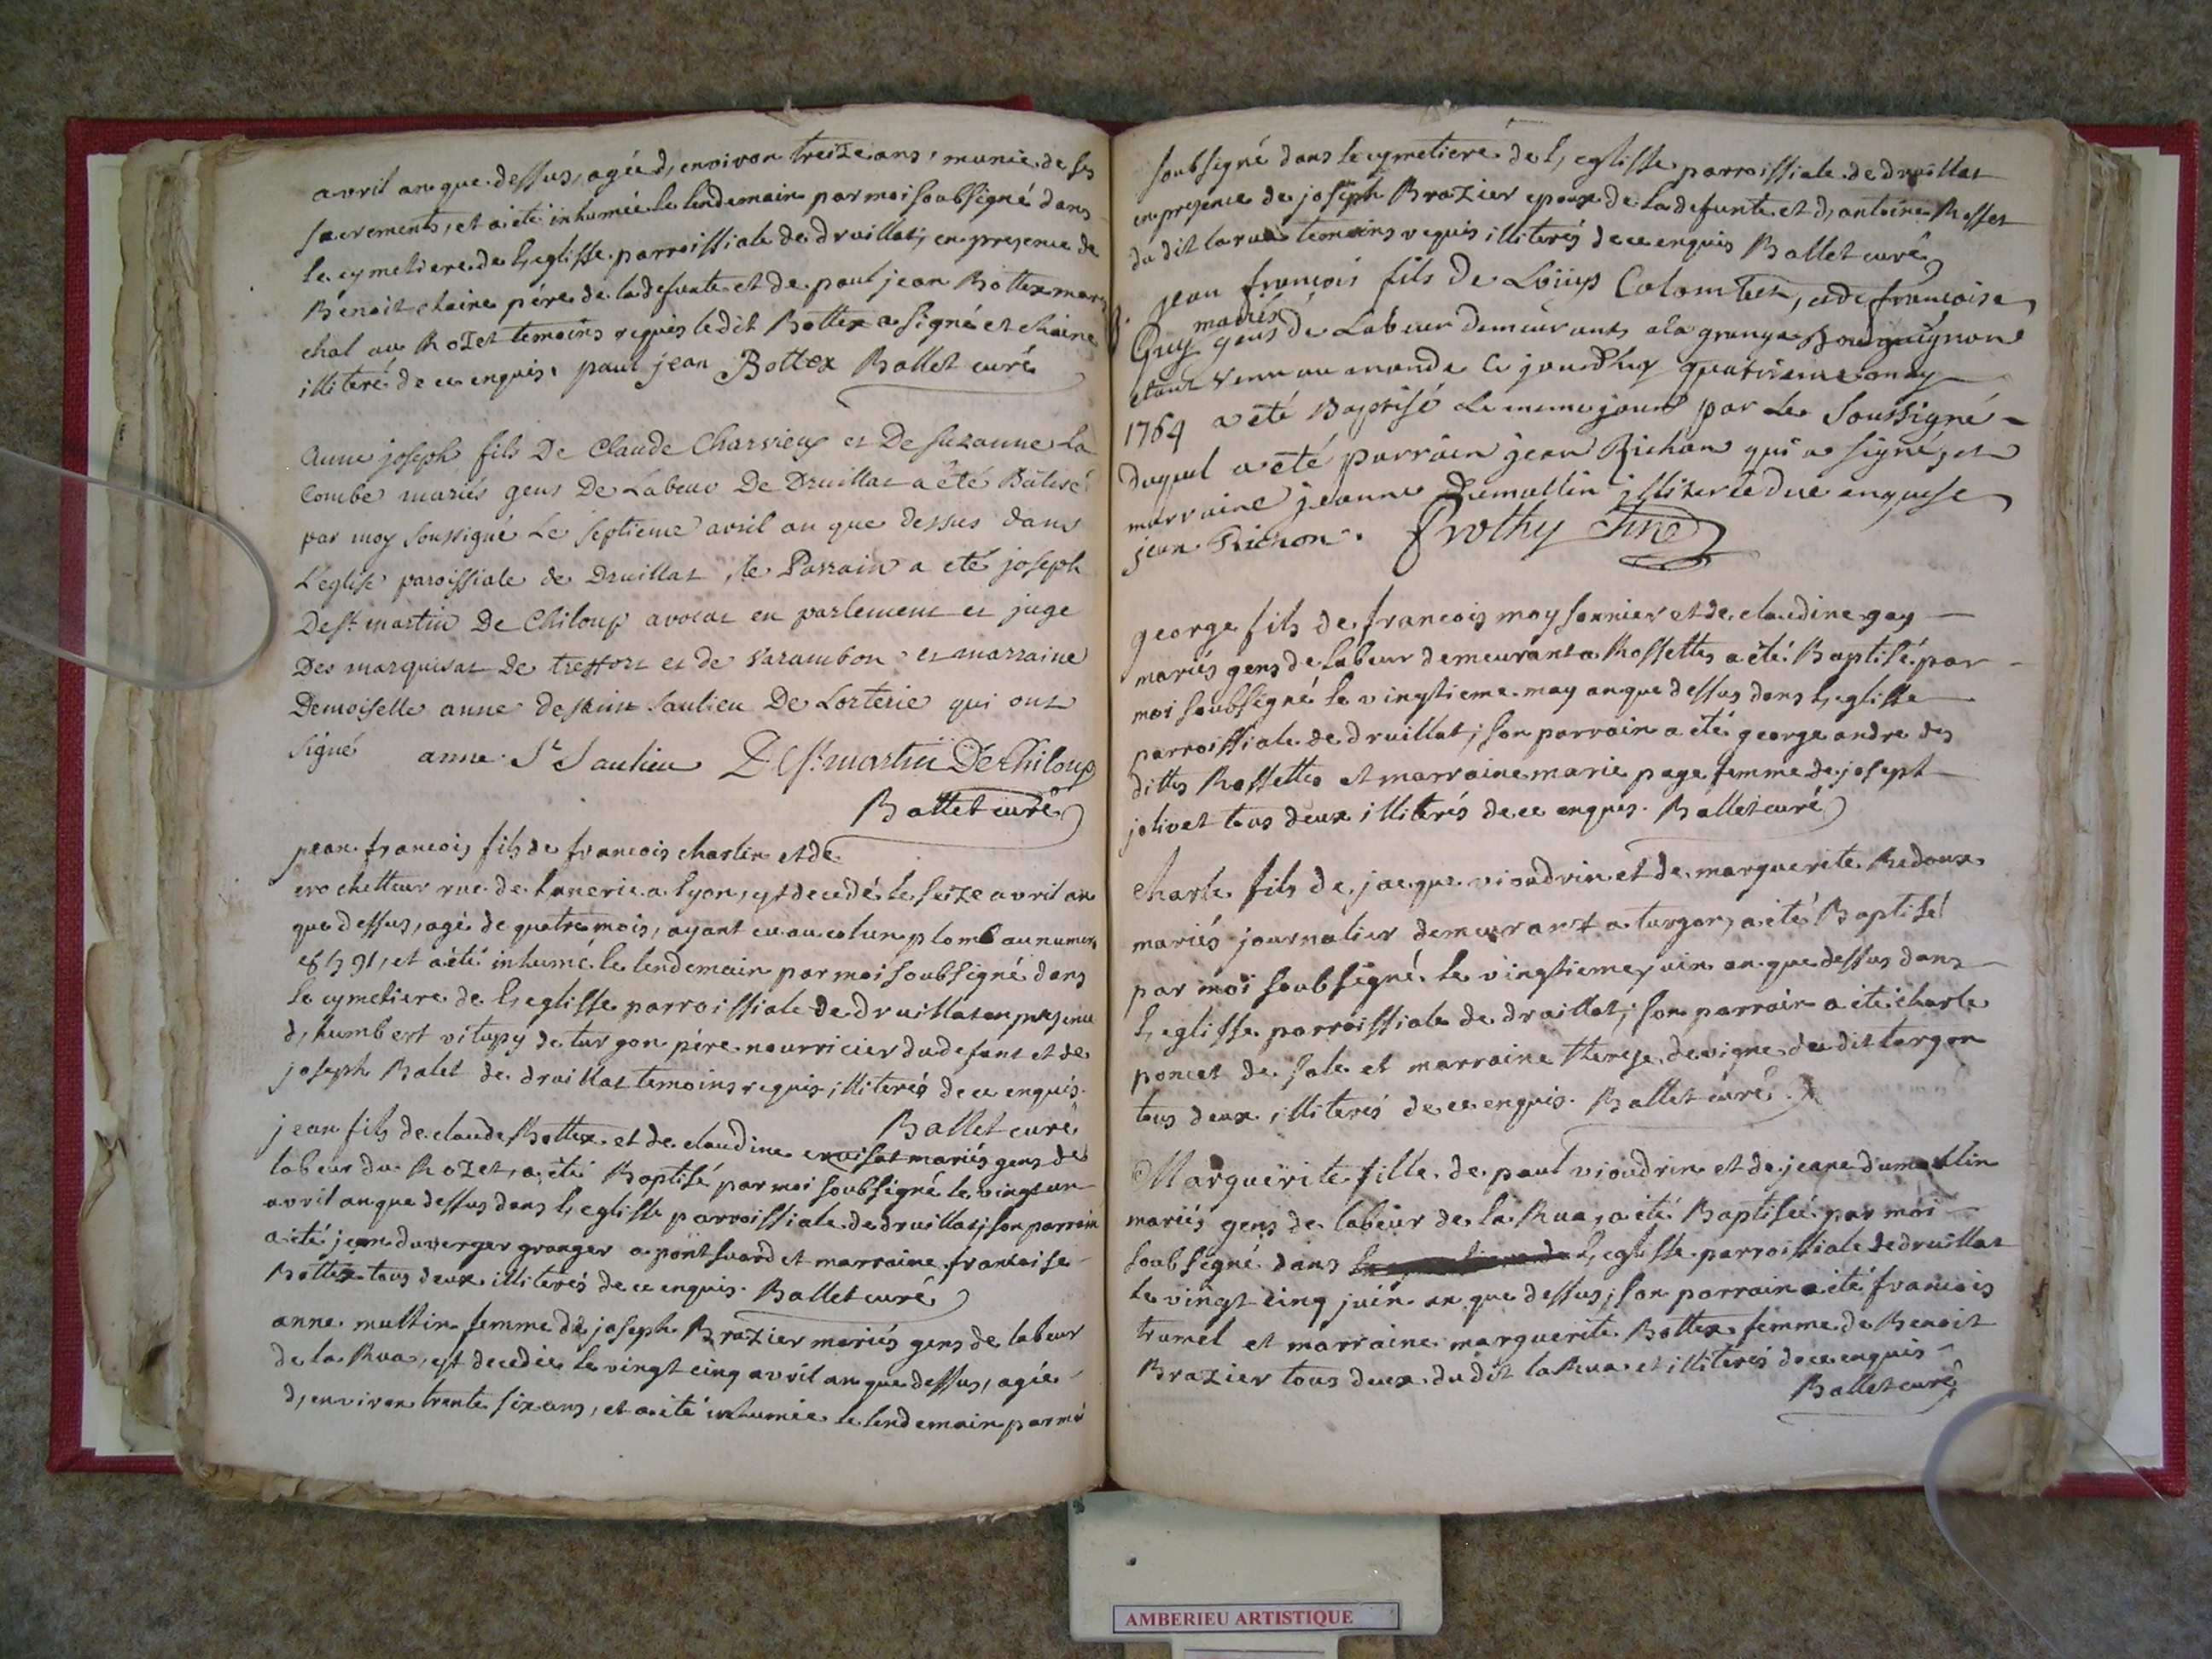 avril an que dessus, agée d, environ treize ans, munie de ses
sacrements, et a été inhumée le lendemain par moi soubsigné dans
le cymetiere de l, eglisse parroissiale de druillat, en presence de
Benoit chaine pére de la defunte et de paul jean Bottex mare
chal au Rozet temoins requis ledit Bottex a signé et chaine
illiteré de ce enquis. paul jean Bottex Ballet curé
anne joseph fils De Claude Charvieux et De suzanne La
Combe mariés gens De Labeur De Druillat a été Batisé
par moy soussigné Le septieme avril an que dessus dans
L'eglise paroissiale de Druillat, le Parrain a eté joseph
De st. martin De Chiloup avocat en parlement et juge
Des marquisat de treffort et de varambon et marraine
Demoiselle anne de saint Saulieu De Lorterie qui ont
signé anne St Saulieu De St. martin De Chiloup
Ballet curé
jean francois fils de francois charlin et de
crochetteur rue de lanerie a lyon, est decedé le seize avril an
que dessus, agé de quatre mois, ayant eu au col un plomb au numero
8591, et a été inhumé le lendemain par moi soubsigné dans
le cymetiere de l, eglisse parroissiale de druillat en presence
d, humbert vitupy de turgon pére nourricier du defunt et de
joseph Balet de druillat temoins requis illiterés de ce enquis.
Ballet curé
jean fils de claude Bottex et de claudine cruisat mariés gens de
labeur du Rozet, a été Baptisé par moi soubsigné le vingt un
avril an que dessus dans l, eglisse parroissiale de druillat, son parrain
a été jean duverger granger a pont suard et marraine francoise
Bottex tous deux illiterés de ce enquis. Ballet curé
anne multin femme de joseph Brazier mariés gens de labeur
de la Rua, est decedée le vingt cinq avril an que dessus, agée
d, environ trente six ans, et a été inhumée le lendemain par moi
soubsigné dans le cymetiere de l, eglisse parroissiale de druillat
en presence de joseph Brazier epoux de la defunte et d, antoine Rosset
du dit larua temoins requis illiterés de ce enquis Ballet curé
jean françois fils de Loüis Colombet, et de françoise
mariés
Guy gens de Labeur demeurants a la grange Bourguignon
etant venu au monde ce jourdhuy quatrieme may
1764 a été Baptisé le meme jour par le soussigné
duquel a été parrain jean Richon qui a signé, et
marraine jeanne Dumollin illiterée due enquise
jean Richon. Brothy
george fils de francois moyssonnier et de claudine gay
mariés gens de labeur demeurant a Rossettes a été Baptisé par
moi soubsigné le vingtieme may an que dessus dans l, eglisse
parroissiale de druillat, son parrain a été george andre des
dittes Rossettes et marraine marie page femme de josept
jolivet tous deux illiterés de ce enquis. Ballet curé
charle fils de jacque vioudrin et de marguerite Redoux
mariés journalier demeurant a turgon, a été Baptisé
par moi soubsigné le vingtieme juin an que dessus dans
l, eglisse parroissiale de druillat, son parrain a été charle
poncet de sale et marraine therese devigne du dit turgon
tous deux illiterés de ce enquis. Ballet curé
Marguerite fille de paul vioudrin et de jeane dumollin
mariés gens de labeur de la Rua, a été Baptisée par moi
soubsigné dans l, eglisse parroissiale de druillat
le vingt cinq juin an que dessus, son parrain a été francois
tramel et marraine marguerite Bottex femme de Benoit
Brazier tous deux du dit la Rua et illiterés de ce enquis
Ballet curé
AMBERIEU ARTISTIQUE